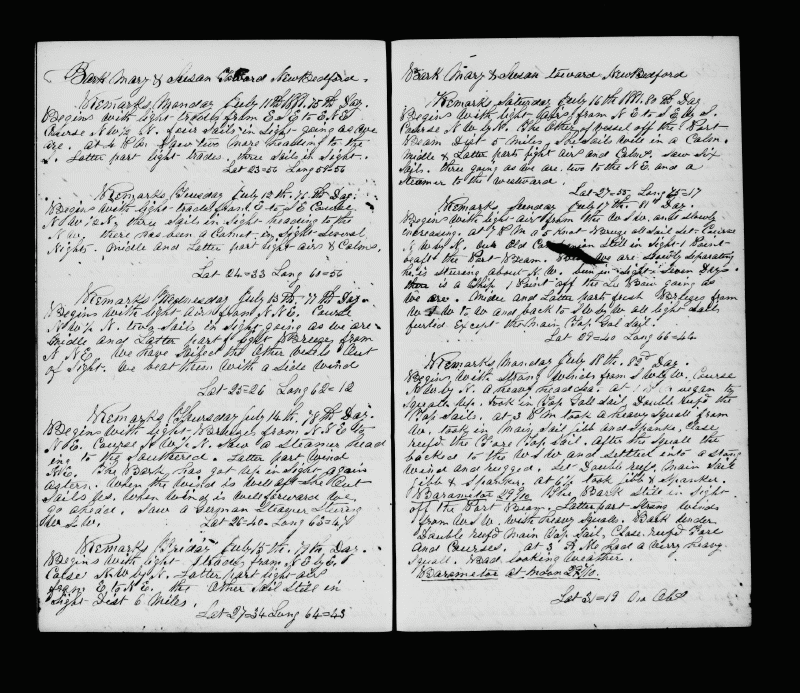 Bark Mary & Susan Toward New Bedford.
Remarks Monday July 11th 1881. 75th Day.
Begins with light trades from E S E to E.N.E
Course N W ½ N. four Sails in Sight going as we
are. at 4 P.M. Saw two more heading to the
S. Latter part light trades. three Sails in Sight.
Lat 23=56 Long 58=56
Remarks Tuesday July 12th. 76th Day.
Begins with light trades from E to S E Course
N W ½ N. three Sails in Sight heading to the
N W. there has been a Comet in Sight Several
Nights. Middle and Latter part light airs & Calms.
Lat 24=33 Long 60=56
Remarks Wednesday July 13th. 77th Day.
Begins with light airs from N.N.E. Course
N W ½ N. two Sails in Sight going as we are
Middle and Latter part light Breeze from
N N E. We have Sailed the Other Vessels Out
of Sight. We beat them with a Side Wind
Lat 25=26 Long 62=12
Remarks Thursday July 14th. 78th Day.
Begins with light Breeze from N.N.E to
N E. Course N W ½ N. Saw a Steamer head
ing to the Southered. Latter part Wind
N.E. The Bark has got up in Sight again
astern. When the wind is well aft She Out
Sails us. When wind is well forward We
go ahead. Saw a German Steamer Stering
S.W.
Lat 26=40 Long 63=48
Remarks Friday July 15th. 79th. Day.
Begins with light trades from N E by E.
Course N.W. by N. Latter part light airs
from E to N.E. the Other Sail Still in
Sight. Dist 6 Miles.
Lat 27=34 Long 64=43
Bark Mary & Susan toward New Bedford
Remarks Saturday July 16th 1881. 80th Day
Begins with light airs from N E to S E by S.
Course N W by N. the Other Vessel off the Port
Beam Dist 5 Miles, She Sails well in a Calm.
Middle & Latter part light Air and Calms. Saw Six
Sails. three going as we are. two to the N.E. and a
Steamer to the Westward.
Lat 27=55, Long 65=17
Remarks, Sunday July 17th. 81st Day.
Begins with light air from the W S W. and Slowly
increasing. at 7 P M a 5 knot Breeze all Sail Set. Course
N W by N. our Old Companion Still in Sight 1 Point
abaft the Port Beam. We are Slowly Separating
he is Steering about N.W. been in Sight Seven Days.
there is a Ship 1 Point off the Lee Bow going as
We are. Middle and Latter part fresh Breezes from
W S W to W and back to S W by W all light Sails
furled Except the Main Top Gal Sail.
Lat 29=40 Long 66=44
Remarks, Monday July 18th. 82d Day.
Begins with Strong Winds from S.W by W. Course
N W by N. a heavy head Sea. at 1 P.M. began to
Squall up. took in Top Gall Sail, Double Reefd the
Top Sails. at 3 P M took a heavy Squall from
W. took in Main Sail jibb and Spanker, Close
reefd. the Fore Top Sail. After the Squall the
backed to the W S W and Settled into a Strong
Wind and rugged. Set Double reefd Main Sail
jibb & Spanker. At 6 took jibb & Spanker.
Baramater 29 9/10 The Bark Still in Sight
off the Port Beam. Latter part Strong Winds
from W S W. With Heavy Squalls. Bark under
Double reefd Main Top Sail, Close reefd Fore
and Courses, at 3 A.M. had a Very heavy
Squall. Bad looking Weather.
Barameter at Noon
Lat 31=19 On Obs